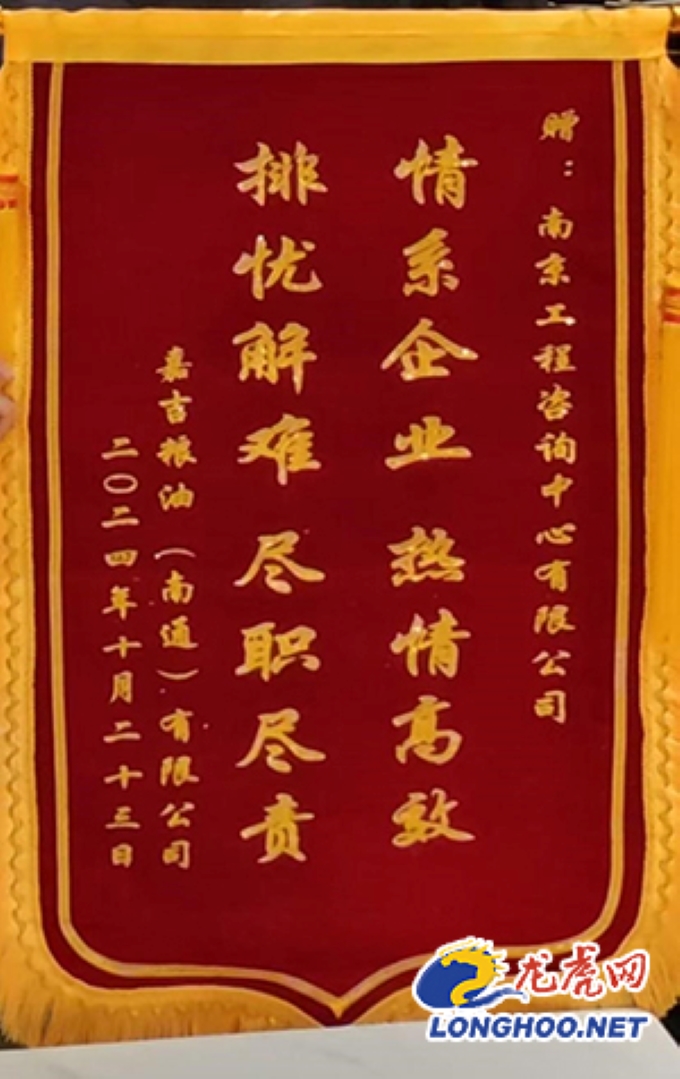 赠：南京工程咨询中心有限公司
情系企业 热情高效
排忧解难 尽职尽责
嘉吉粮油（南通）有限公司
二〇二四年十月二十三日
龙虎网
LONGHOO.NET